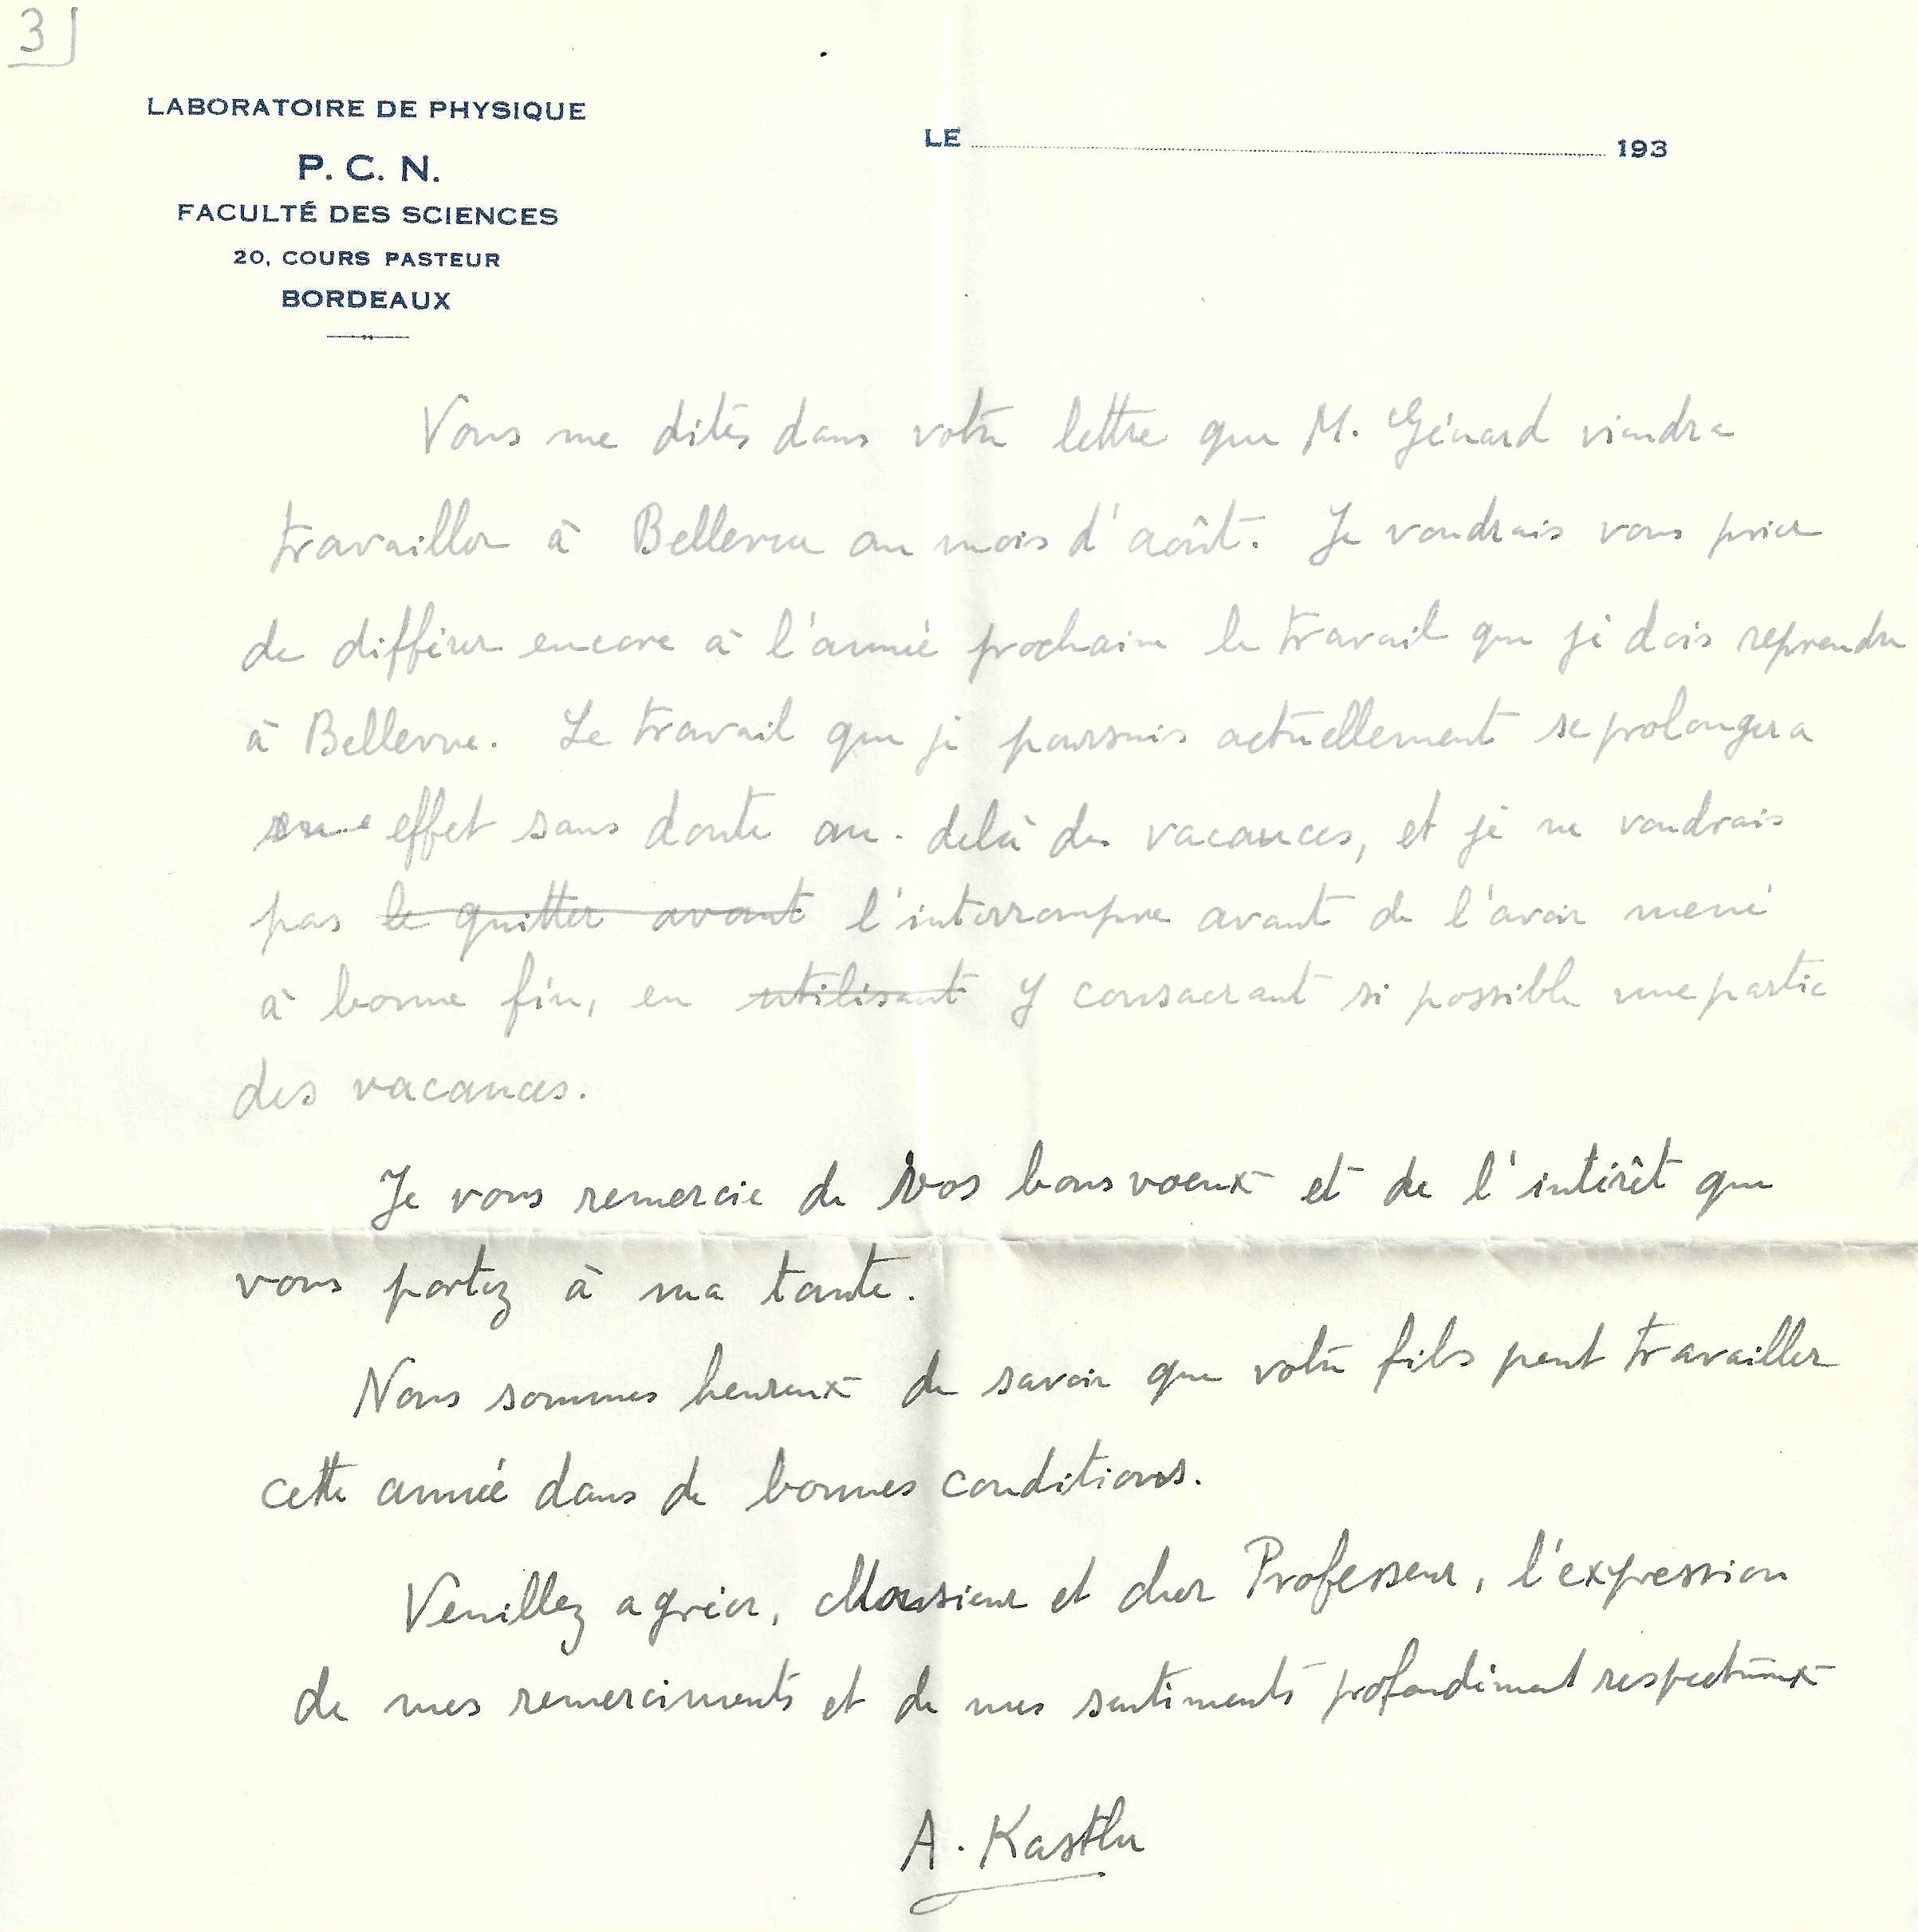 3
LABORATOIRE DE PHYSIQUE
P. C. N.
FACULTÉ DES SCIENCES
20, COURS PASTEUR
BORDEAUX
LE 193
Vous me dites dans votre lettre que M. Génard viendra
travailler à Bellevue au mois d'août. Je voudrais vous prier
de différer encore à l'année prochaine le travail que je dois reprendre
à Bellevue. Le travail que je poursuis actuellement se prolongera
en effet sans doute au-delà des vacances, et je ne voudrais
pas le quitter avant l'interrompre avant de l'avoir mené
à bonne fin, en utilisant y consacrant si possible une partie
des vacances.
Je vous remercie de vos bons voeux et de l'intérêt que
vous portez à ma tante.
Nous sommes heureux de savoir que votre fils peut travailler
cette année dans de bonnes conditions.
Veuillez agréer, Monsieur et cher Professeur, l'expression
de mes remerciments et de mes sentiments profondément respectueux
A. Kastler